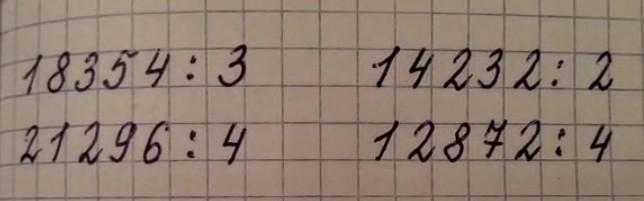 18354 : 3 14232 : 2
21296 : 4 12872 : 4